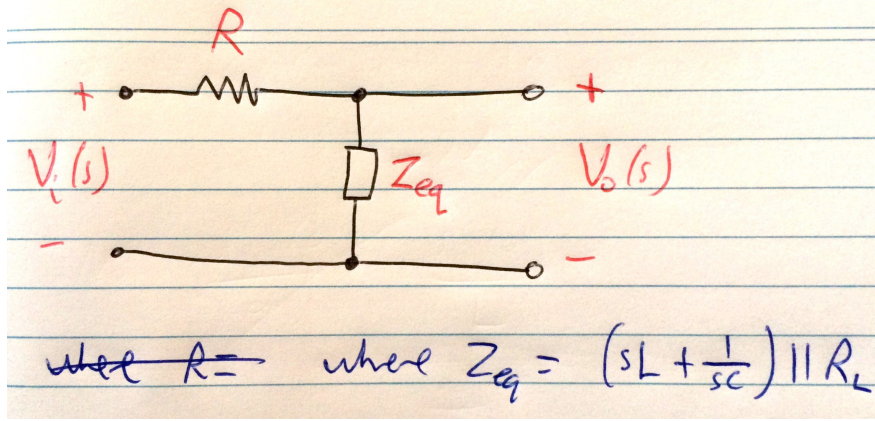 R
+ +
Vᵢ(s) Z_eq V₀(s)
- -
where R= where Z_eq = (sL + 1/sC) || R_L